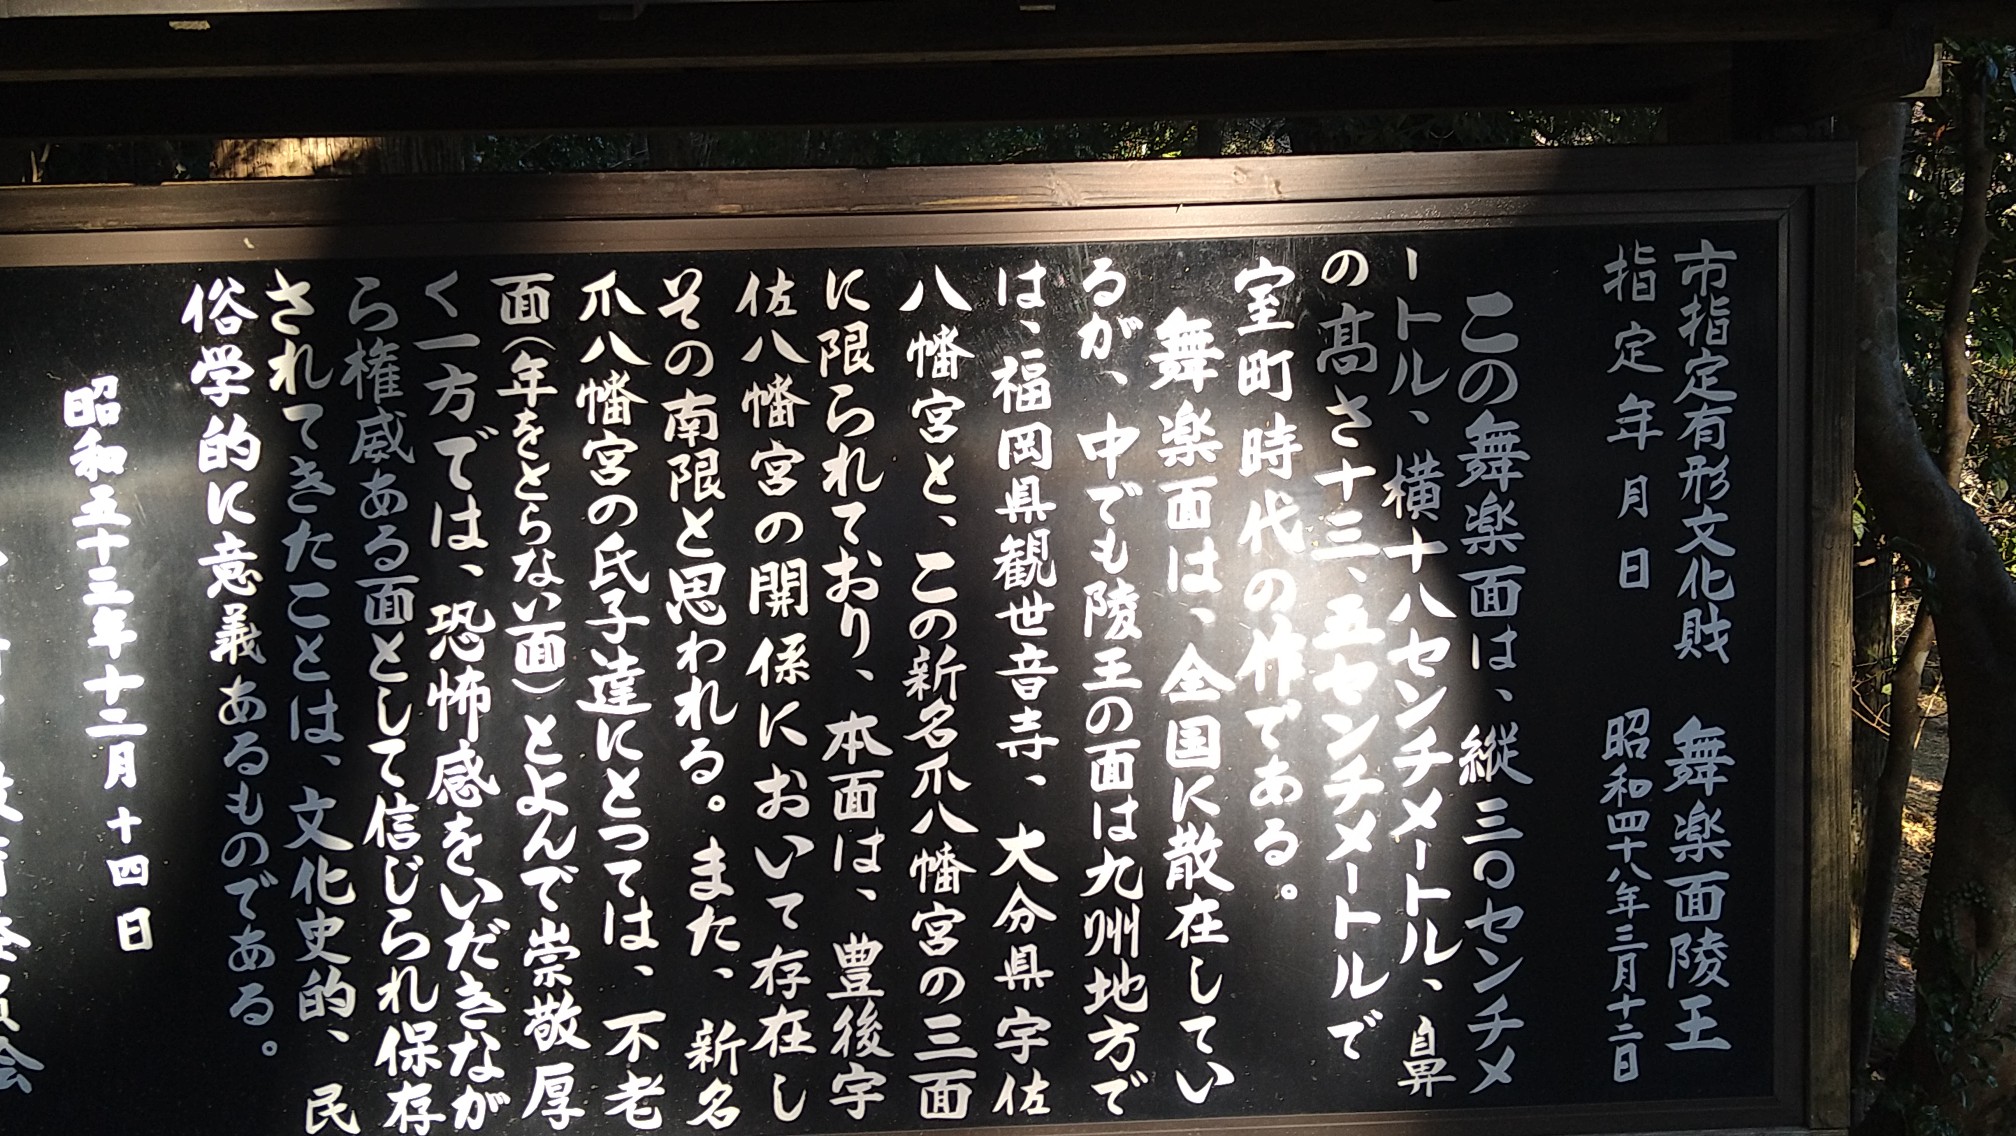 市指定有形文化財　舞楽面陵王
指定年月日　昭和四十八年三月十二日
この舞楽面は、縦三〇センチメ
ートル、横十八センチメートル、鼻
の髙さ十三、五センチメートルで
室町時代の作である。
舞楽面は、全国に散在してい
るが、中でも陵王の面は九州地方で
は、福岡県観世音寺、大分県宇佐
八幡宮と、この新名爪八幡宮の三面
に限られており、本面は、豊後宇
佐八幡宮の関係において存在し
その南限と思われる。また、新名
爪八幡宮の氏子達にとつては、不老
面(年をとらない面)とよんで崇敬厚
く一方では、恐怖感をいだきなが
ら権威ある面として信じられ保存
されてきたことは、文化史的、民
俗学的に意義あるものである。
昭和五十三年十二月十四日